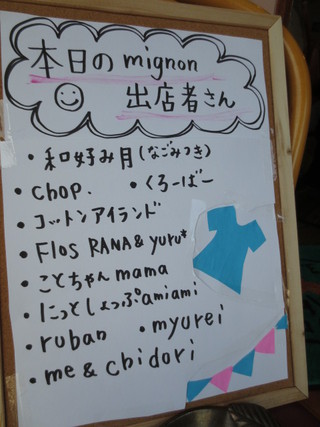 本日のmignon
出店者さん
・和好み月(なごみつき)
・chop. ・くろーばー
・コットンアイランド
・Flos RANA & yuru*
・ことちゃんmama
・にっとしょっぷamiami
・ruban ・myurei
・me & chidori